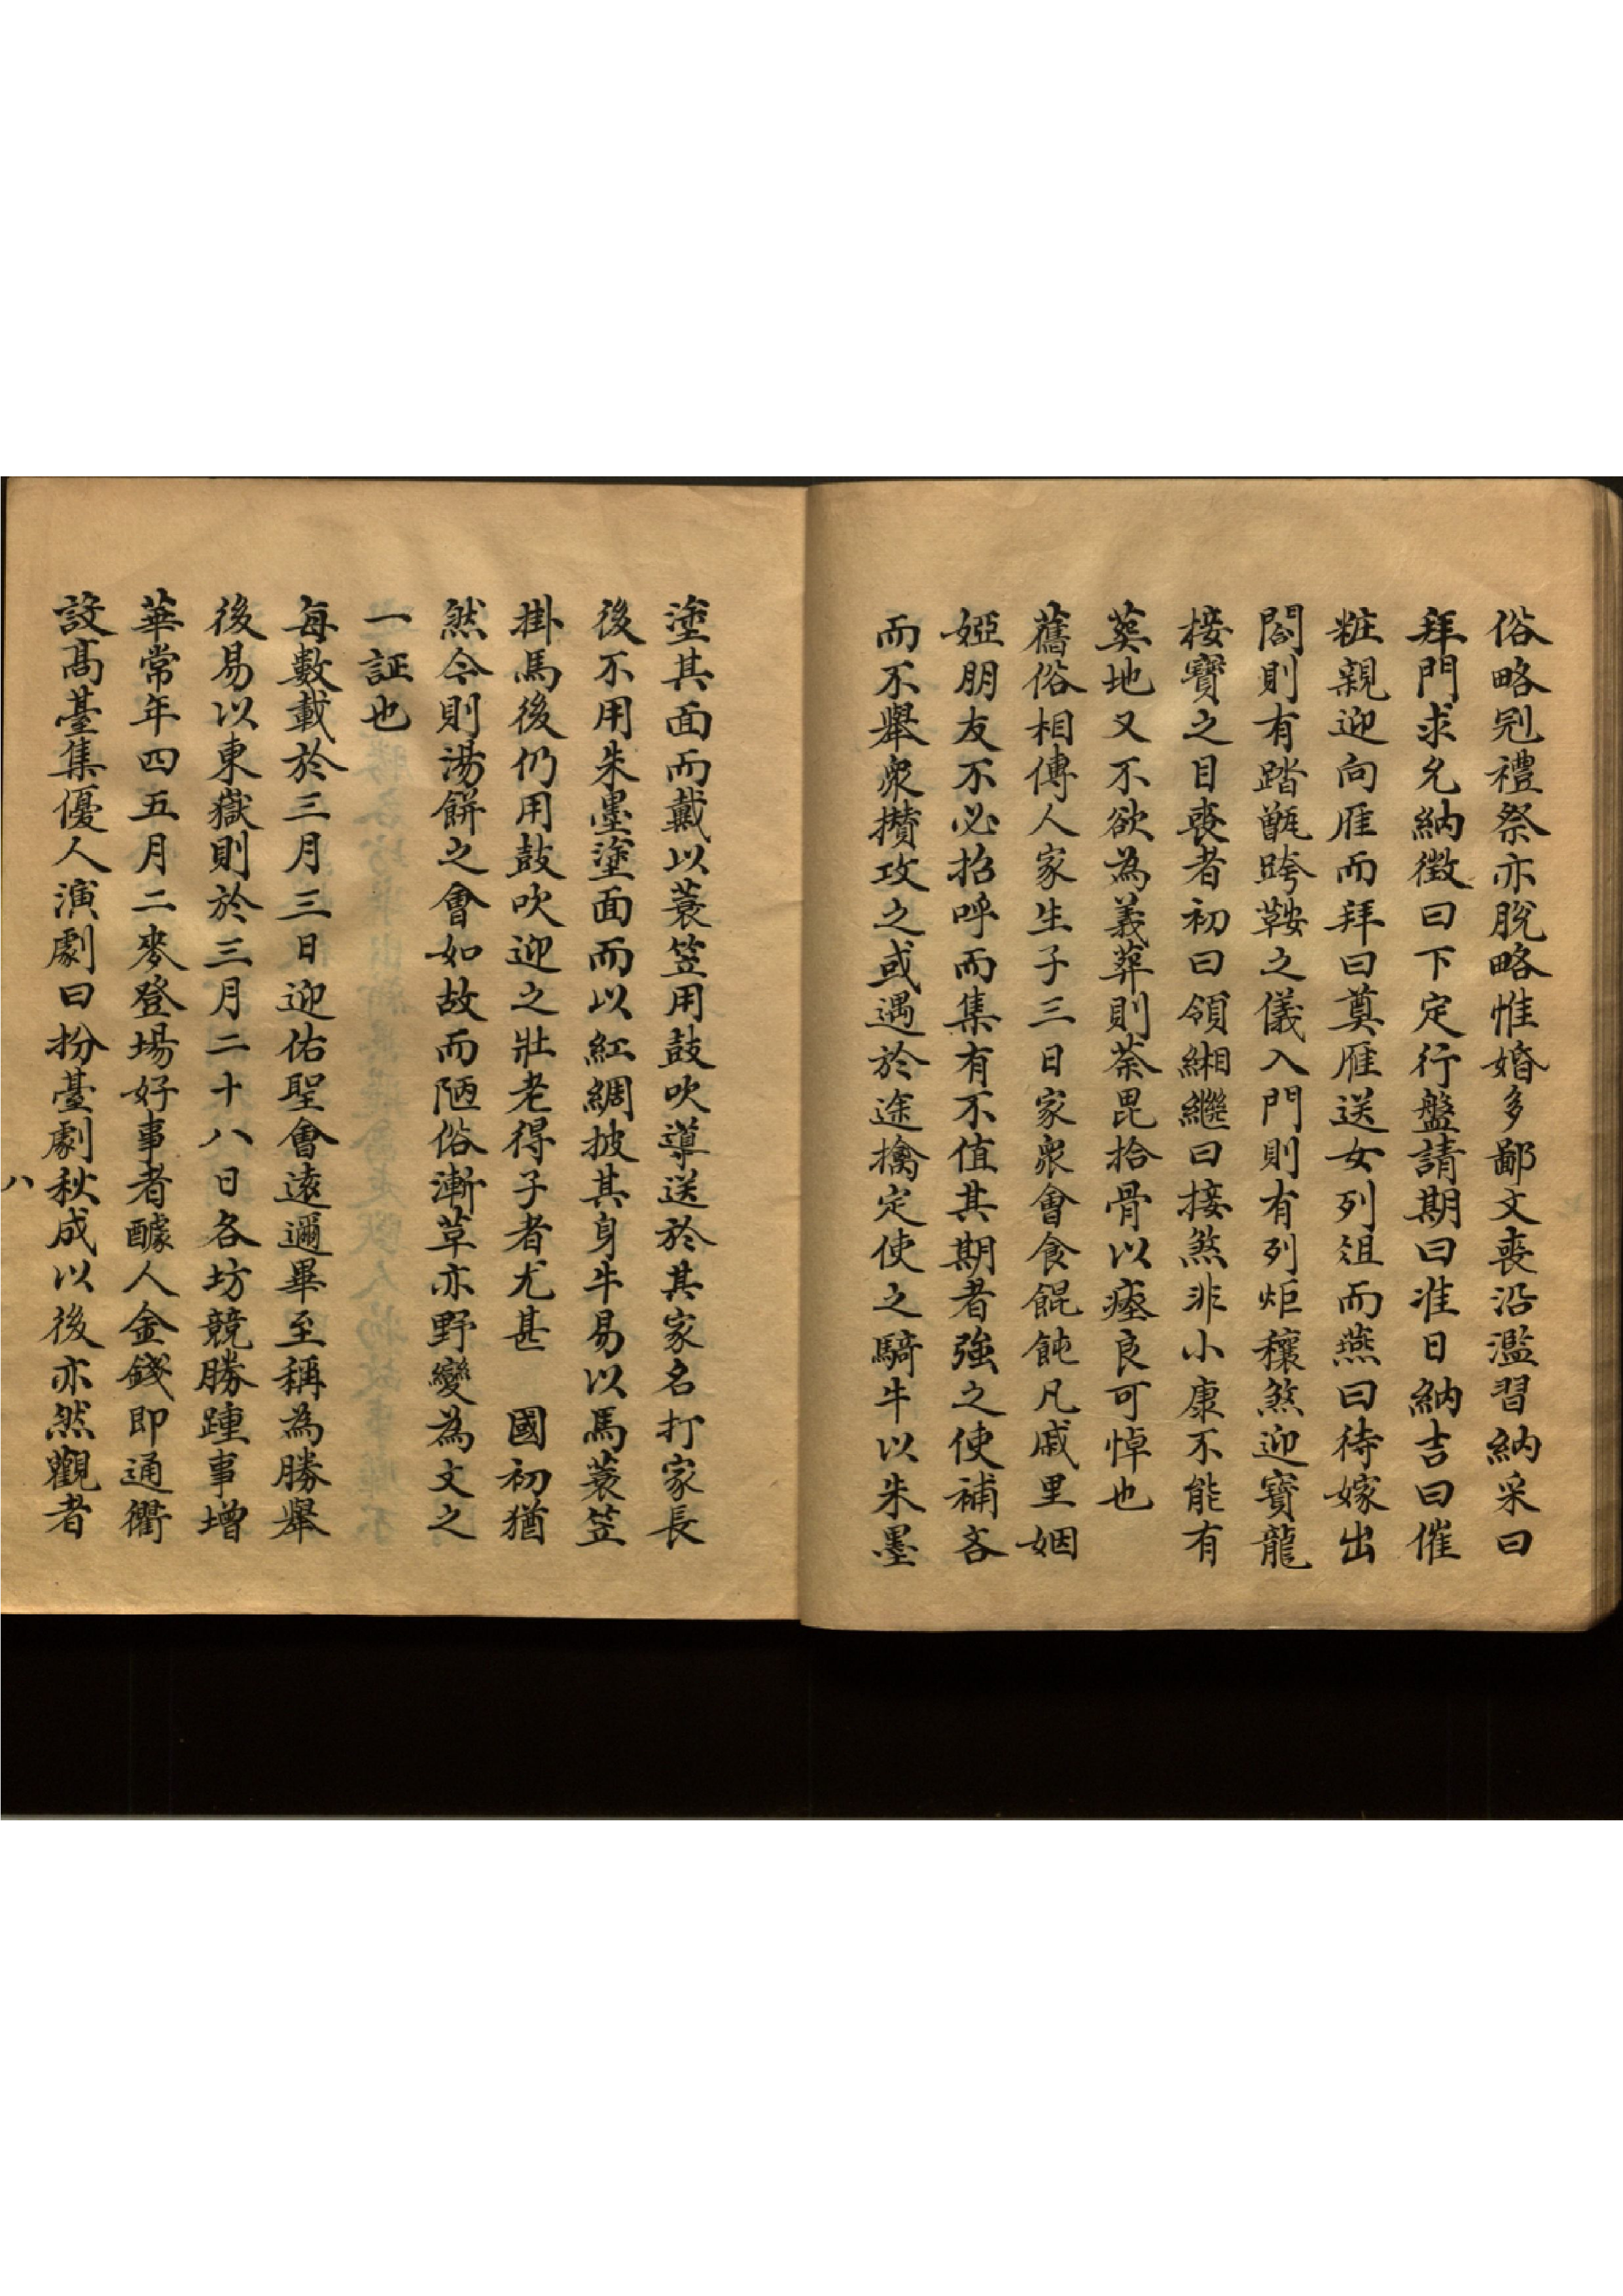 俗略冠禮祭亦脫略惟婚多鄙文喪沿濫習納采曰
拜門求允納徵曰下定行盤請期曰准日納吉曰催
粧親迎向雁而拜曰奠雁送女列俎而燕曰待嫁出
閤則有踏甑跨鞍之儀入門則有列炬穰煞迎寶龍
接寶之目喪者初曰領緗繼曰接煞非小康不能有
塟地又不欲為義葬則荼毘拾骨以瘞良可悼也
舊俗相傳人家生子三日家衆會食餛飩凡戚里姻
婭朋友不必招呼而集有不值其期者強之使補吝
而不舉衆攢攻之或遇於途擒定使之騎牛以朱墨
塗其面而戴以蓑笠用鼓吹導送於其家名打家長
後不用朱墨塗面而以紅綢披其身牛易以馬蓑笠
掛馬後仍用鼓吹迎之壯老得子者尤甚　國初猶
然今則湯餅之會如故而陋俗漸草亦野變為文之
一証也
每數載於三月三日迎佑聖會遠邇畢至稱為勝舉
後易以東嶽則於三月二十八日各坊競勝踵事增
華常年四五月二麥登場好事者醵人金錢即通衢
設高臺集優人演劇曰扮臺劇秋成以後亦然觀者
八